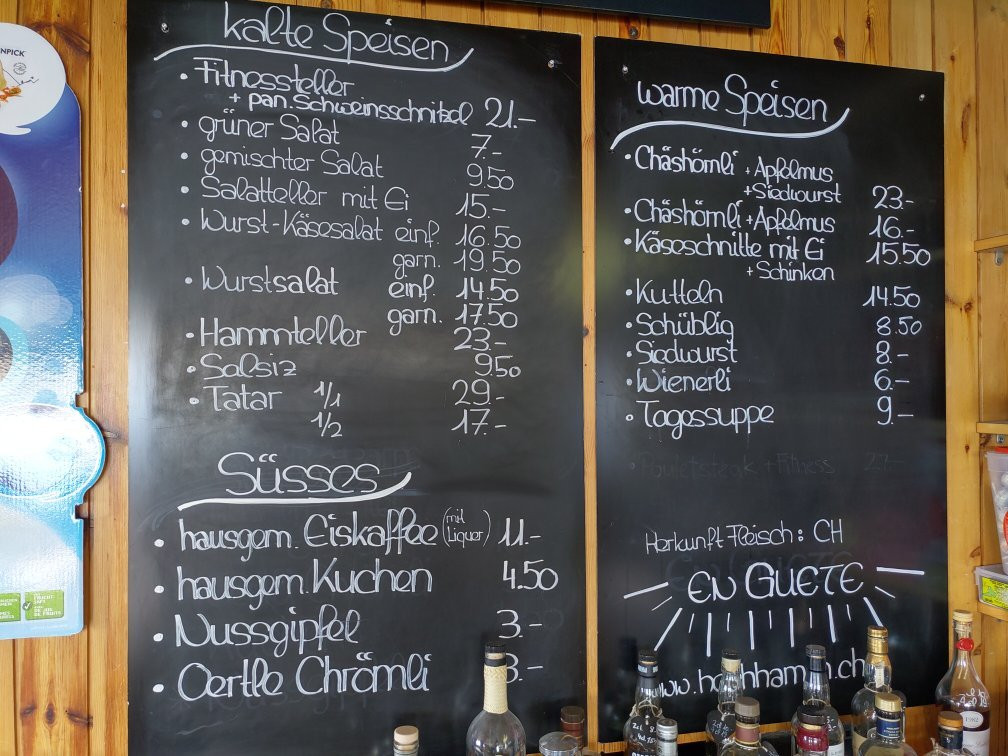 kalte Speisen
• Fitnessteller
+ pan. Schweinsschnitzel 21.-
• grüner Salat 7.-
• gemischter Salat 9.50
• Salatteller mit Ei 15.-
• Wurst-Käsesalat einf. 16.50
garn. 19.50
• Wurstsalat einf. 14.50
garn. 17.50
• Hammteller 23.-
• Salsiz 9.50
• Tatar 1/1 29.-
1/2 17.-
Süsses
• hausgem. Eiskaffee (mit Liquer) 11.-
• hausgem. Kuchen 4.50
• Nussgipfel 3.-
• Oertle Chrömli 3.-
warme Speisen
• Chäshörnli + Apfelmus
+ Siedwurst 23.-
• Chäshörnli + Apfelmus 16.-
• Käseschnitte mit Ei 15.50
+ Schinken
• Kutteln 14.50
• Schüblig 8.50
• Siedwurst 8.-
• Wienerli 6.-
• Tagessuppe 9.-
+ Fitness
Herkunft Fleisch: CH
EN GUETE
1982